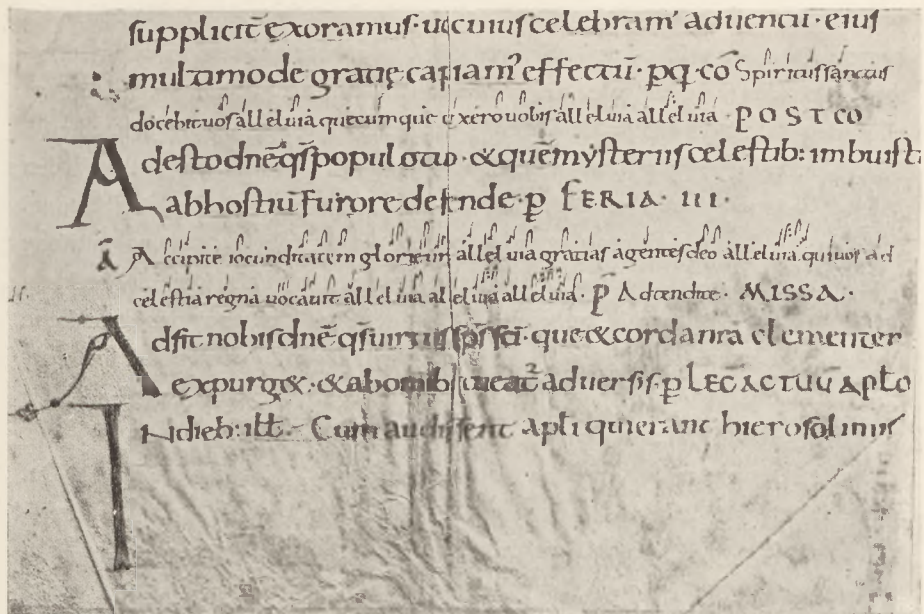 suppliciter exoramus· ut cuius celebram' aduentu· eius
multimode gratię capiam' effectū· p q· cō Spiritussanctus
docebit uos all eluia quecumque dixero uobis all eluia all eluia · POSTCO
Adesto dnē qs populo tuo · & quē mysteriis celestib: imbuisti
ab hostiū furore defende· p FERIA · III ·
ā Accipite iocunditatem glorie ur̄ all eluia gratias agentes deo all eluia. qui uos ad
celestia regna uocauit all eluia all eluia all eluia· p Adtendite· MISSA ·
Adsit nobis dnē qs uirtus sps sci· que & corda nra clementer
expurg&· & ab omnib; tueat' aduersis· p LEC ACTUŪ APLO
IN dieb: ill̄· Cum audissent apli qui erant hierosolimis